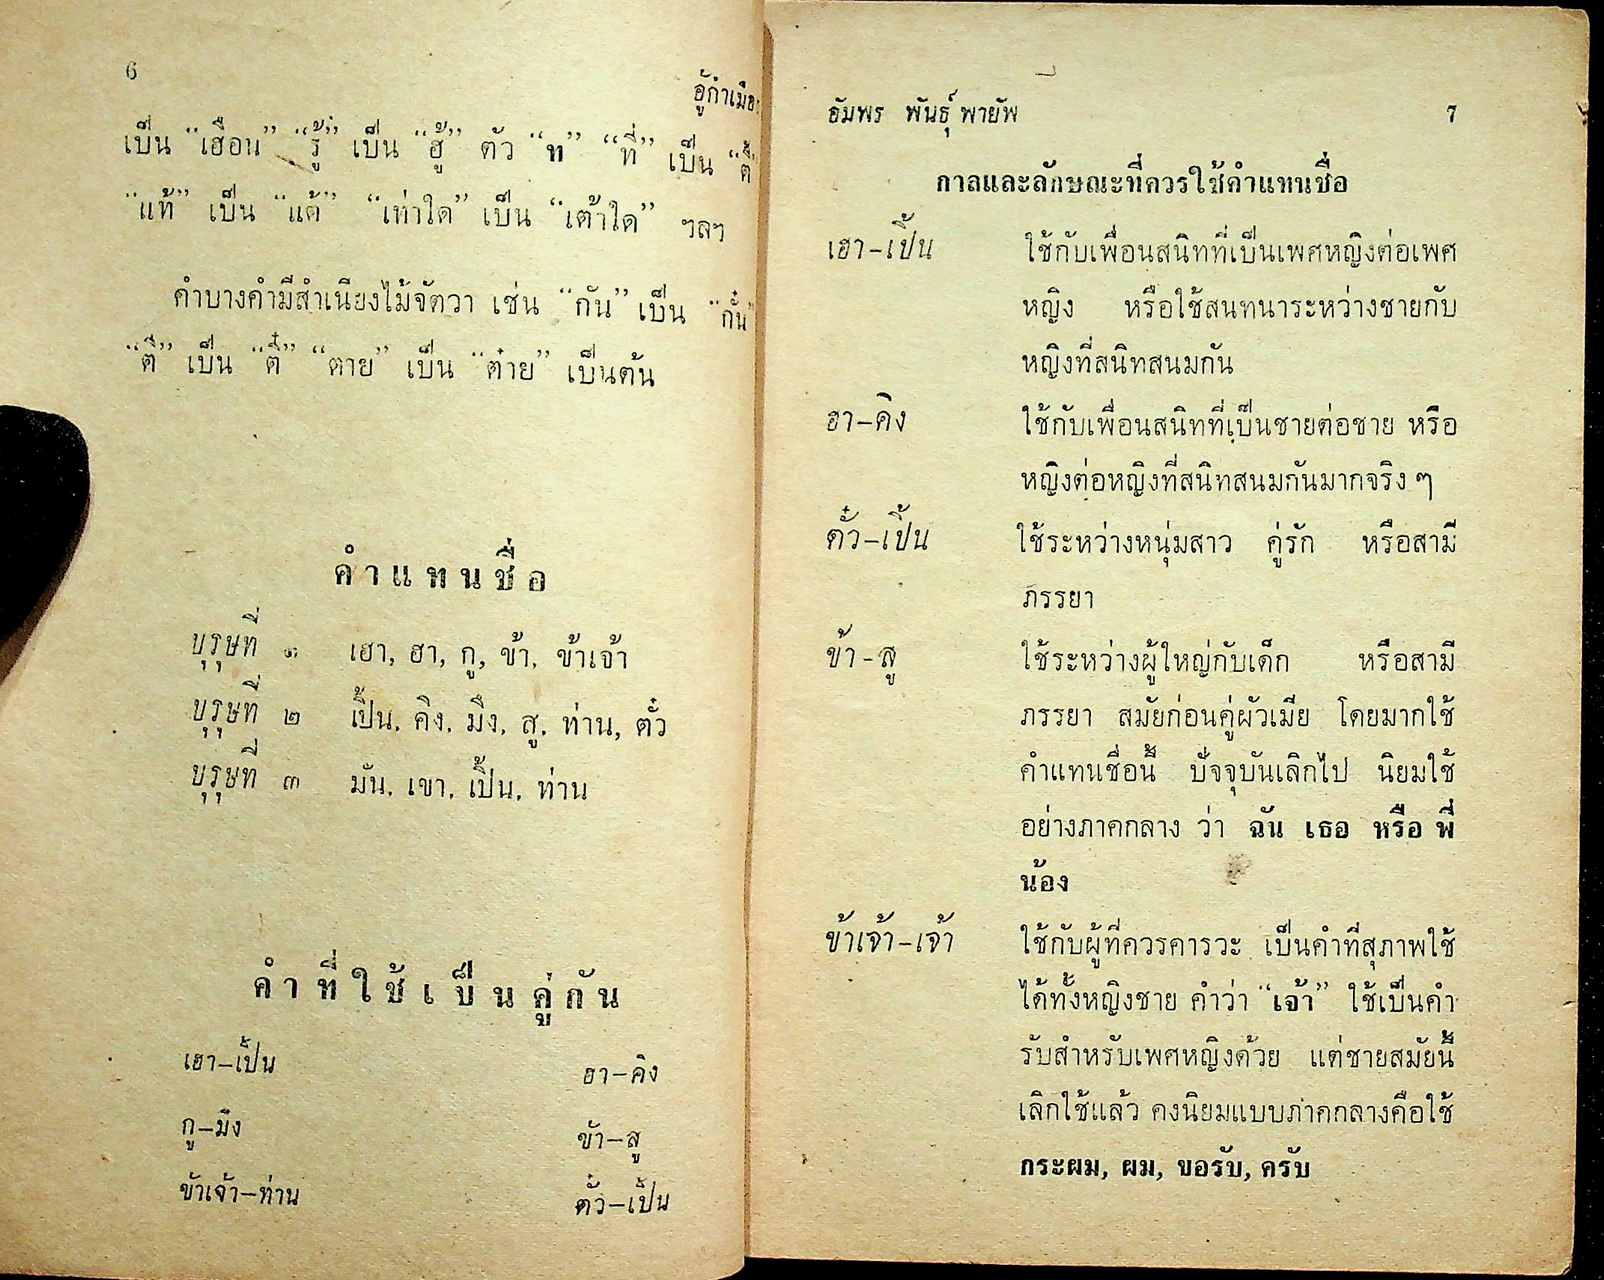 6
อู้กำเมือง
เป็น “เฮือน” “รู้” เป็น “ฮู้” ตัว “ท” “ที่” เป็น “ตี้”
“แท้” เป็น “แต้” “เท่าใด” เป็น “เต้าใด” ฯลฯ
คำบางคำมีสำเนียงไม้จัตวา เช่น “กัน” เป็น “กั๋น”
“ตี” เป็น “ตี๋” “ตาย” เป็น “ต๋าย” เป็นต้น
คำแทนชื่อ
บุรุษที่ ๑ เฮา, ฮา, กู, ข้า, ข้าเจ้า
บุรุษที่ ๒ เปิ้น, คิง, มึง, สู, ท่าน, ตั๋ว
บุรุษที่ ๓ มัน, เขา, เปิ้น, ท่าน
คำที่ใช้เป็นคู่กัน
เฮา–เปิ้น ฮา–คิง
กู–มึง ข้า–สู
ข้าเจ้า–ท่าน ตั๋ว–เปิ้น
อัมพร พันธุ์พายัพ 7
กาลและลักษณะที่ควรใช้คำแทนชื่อ
เฮา–เปิ้น ใช้กับเพื่อนสนิทที่เป็นเพศหญิงต่อเพศ
หญิง หรือใช้สนทนาระหว่างชายกับ
หญิงที่สนิทสนมกัน
ฮา–คิง ใช้กับเพื่อนสนิทที่เป็นชายต่อชาย หรือ
หญิงต่อหญิงที่สนิทสนมกันมากจริง ๆ
ตั๋ว–เปิ้น ใช้ระหว่างหนุ่มสาว คู่รัก หรือสามี
ภรรยา
ข้า–สู ใช้ระหว่างผู้ใหญ่กับเด็ก หรือสามี
ภรรยา สมัยก่อนคู่ผัวเมีย โดยมากใช้
คำแทนชื่อนี้ ปัจจุบันเลิกไป นิยมใช้
อย่างภาคกลาง ว่า ฉัน เธอ หรือ พี่
น้อง
ข้าเจ้า–เจ้า ใช้กับผู้ที่ควรคารวะ เป็นคำที่สุภาพใช้
ได้ทั้งหญิงชาย คำว่า “เจ้า” ใช้เป็นคำ
รับสำหรับเพศหญิงด้วย แต่ชายสมัยนี้
เลิกใช้แล้ว คงนิยมแบบภาคกลางคือใช้
กระผม, ผม, ขอรับ, ครับ